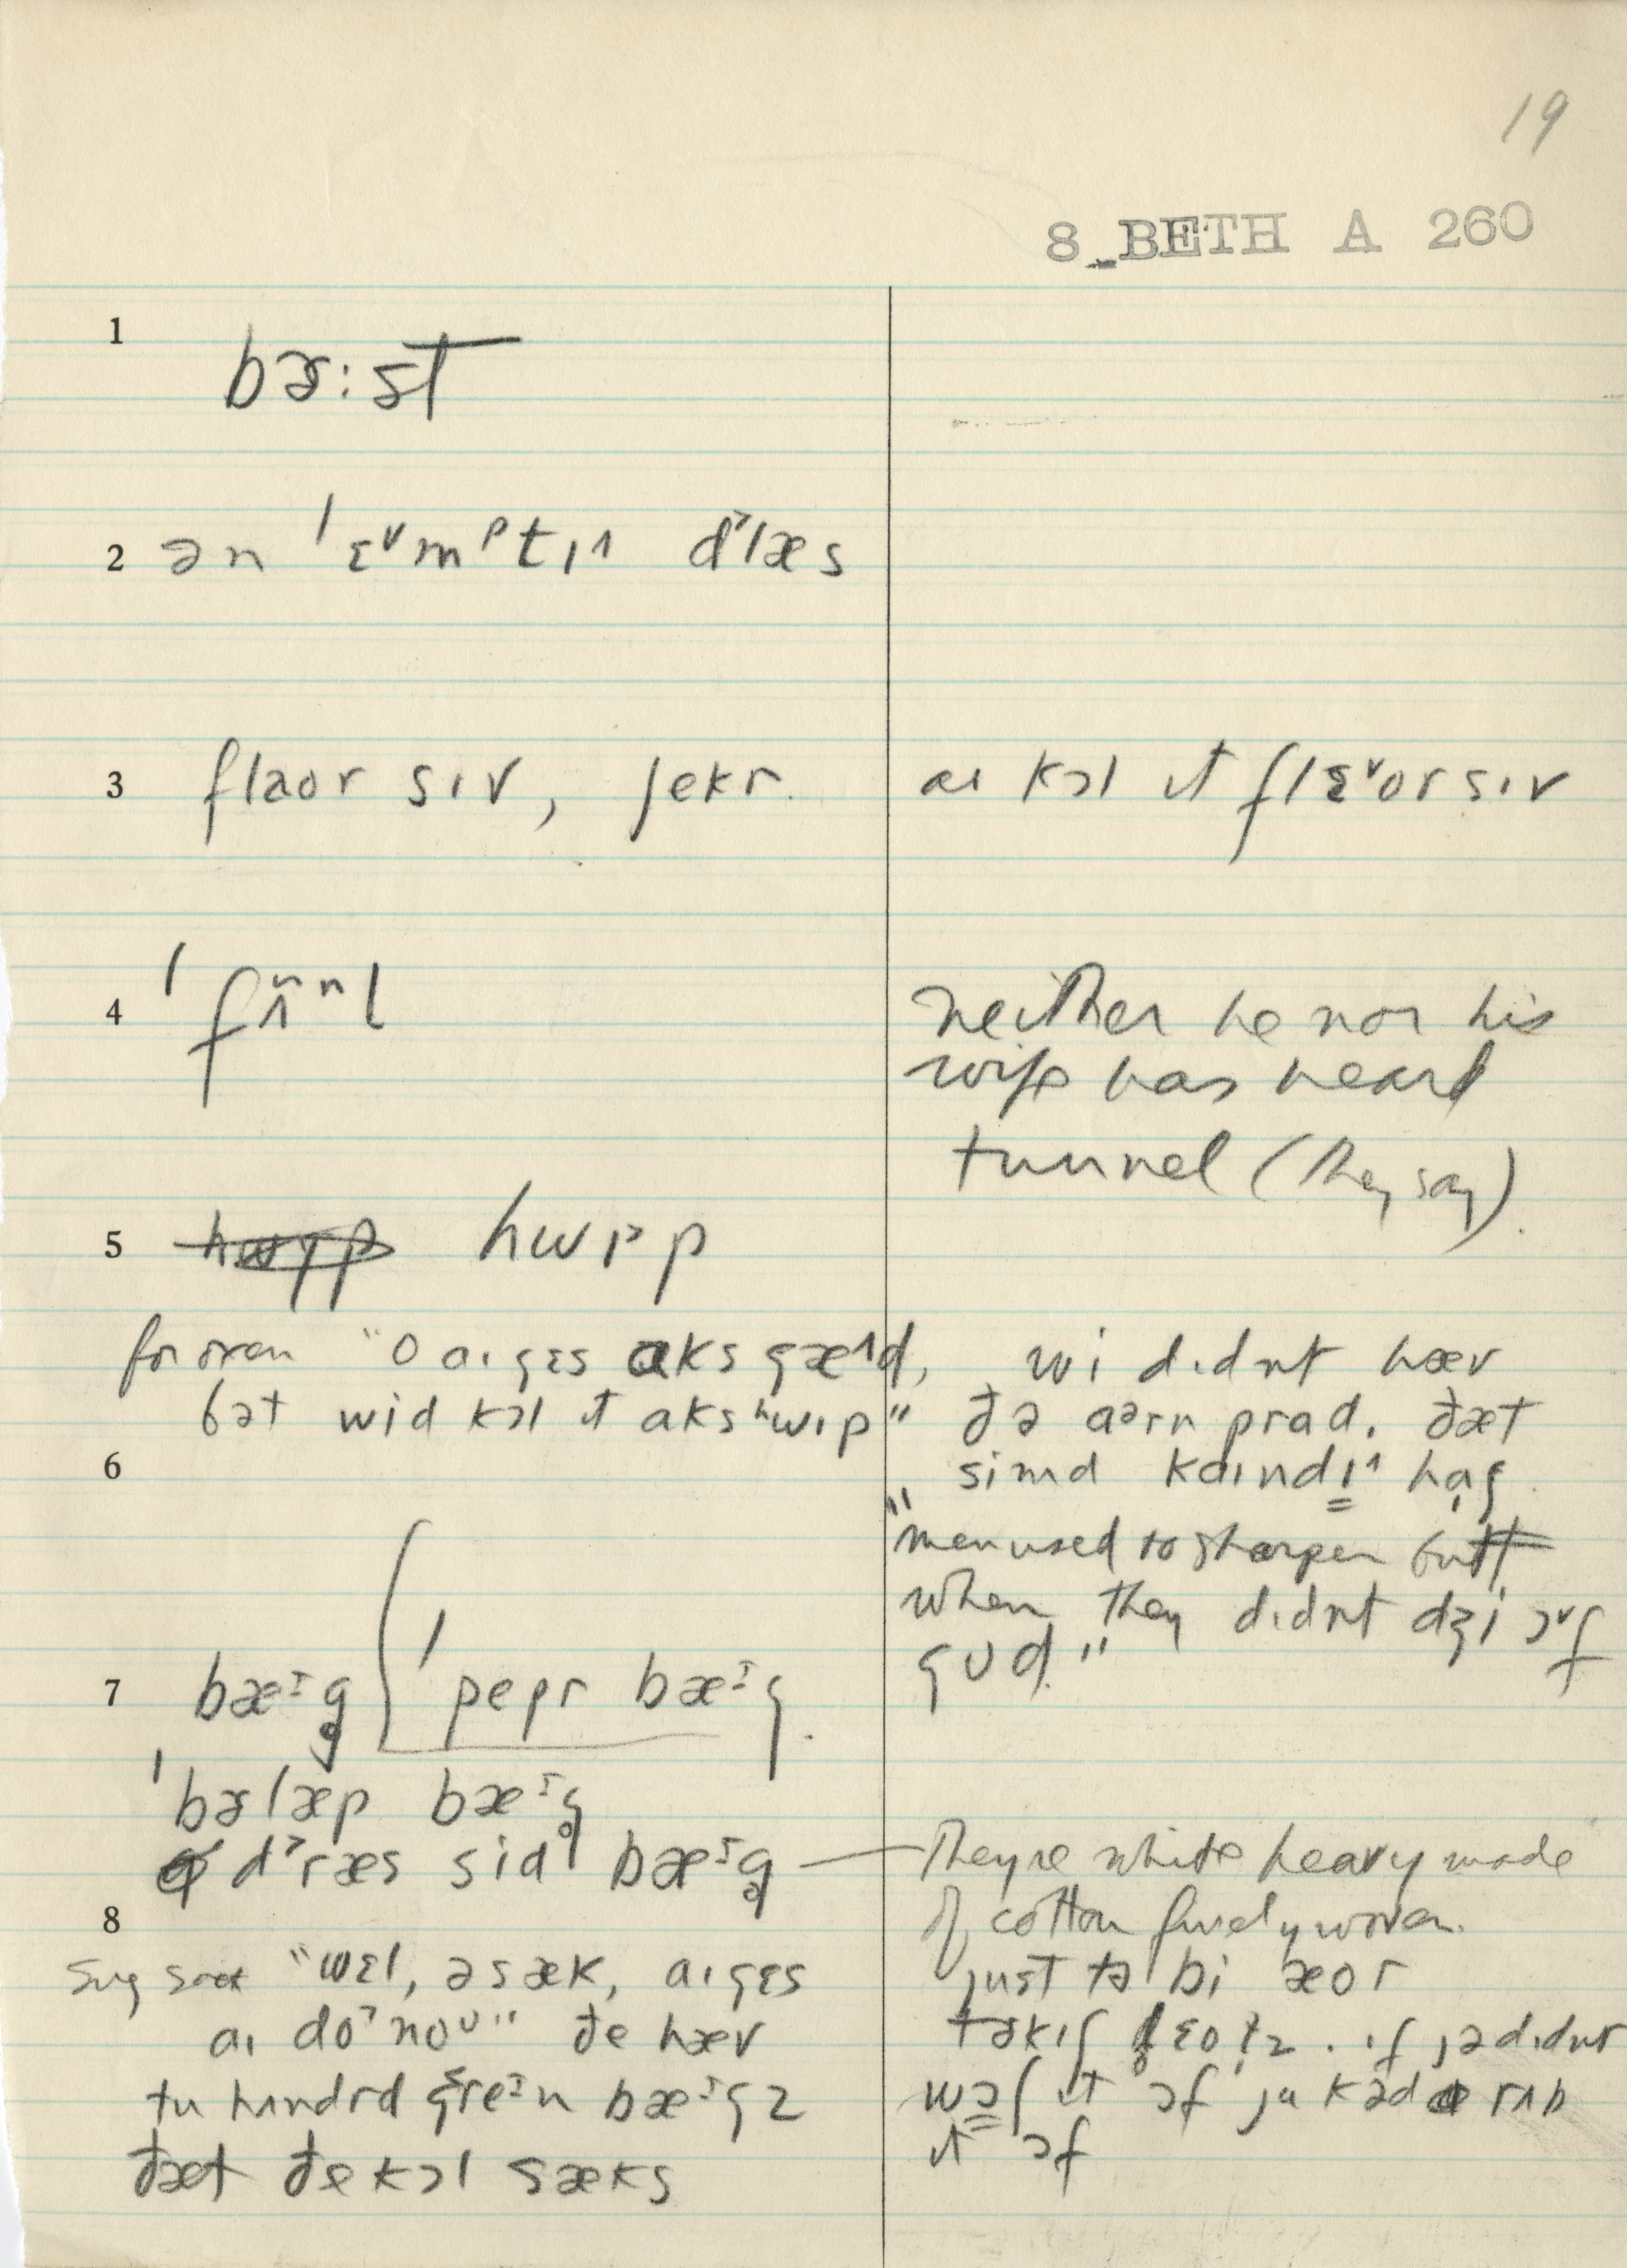 19
8 BETH A 260
1 bɚ:st
2 ən ˈɛᵛmᵖtɪ^ d˃læs
3 flaor sɪv, ʃekr.
aɪ kɔl ɪt flɛᵛor sɪv
4 ˈfʌ̃nl
neither he nor his
wife has heard
tunnel (they say).
5 hwɪ˃p
for oxen "o aɪ gɛs aks gæ^d,
bət wid kɔl ɪt aks ʰwɪp"
wi dɪdnt hæv
ðə aᵊrn prad. ðæt
simd kaɪndɪ^ haʃ
6
"men used to sharpen butt
when they dɪdnt dʒi ɔᵛf
gʊd."
7 bæᶦg̥ ˈpepr bæᶦg.
ˈbɚlæp bæᶦg̥
d˃ræs sid bæᶦg̥
They're white heavy made
of cotton finely woven.
just tə bi æor
8
"wɛl, ə sæk, aɪ gɛs
aɪ do˃noᶸ" ðe hæv
tu hʌndrd greᶦn bæᶦgz
ðæt ðe kɔl sæks
ɪf jə dɪdnt
wɔʃ ɪt ɔf ju kəd rʌb
ɪt ɔf